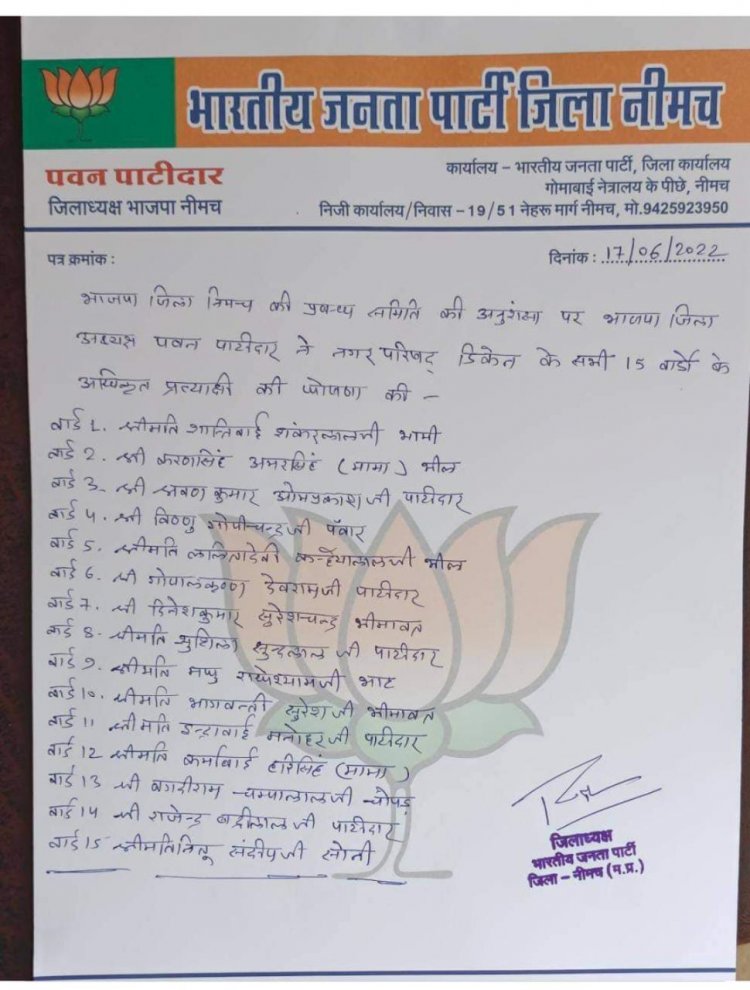 भारतीय जनता पार्टी जिला नीमच
पवन पाटीदार
जिलाध्यक्ष भाजपा नीमच
कार्यालय – भारतीय जनता पार्टी, जिला कार्यालय
गोमाबाई नेत्रालय के पीछे, नीमच
निजी कार्यालय/निवास – 19/51 नेहरू मार्ग नीमच, मो.9425923950
पत्र क्रमांक :
दिनांक : 17/06/2022
भाजपा जिला निमच की प्रबन्ध समिति की अनुशंसा पर भाजपा जिला
अध्यक्ष पवन पाटीदार ने नगर परिषद् डिकेन के सभी 15 वार्डो के
अधिकृत प्रत्याक्षी की घोषणा की –
वार्ड 1. श्रीमति शान्तिबाई शंकरलालजी भामी
वार्ड 2. श्री करणसिंह अमरसिंह (मामा) भील
वार्ड 3. श्री श्रवण कुमार ओमप्रकाश जी पाटीदार
वार्ड 4. श्री विष्णु गोपीचन्द्र जी पॅवार
वार्ड 5. श्रीमति ललितादेवी कन्हैयालालजी भील
वार्ड 6. श्री गोपालकृष्ण देवरामजी पाटीदार
वार्ड 7. श्री दिनेशकुमार सुरेशचन्द्र भीमावत
वार्ड 8. श्रीमति सुशिला सुन्दलाल जी पाटीदार
वार्ड 9. श्रीमति मधु राधेश्यामजी भाट
वार्ड 10. श्रीमति भागवन्ती सुरेश जी भीमावत
वार्ड 11 श्रीमति इन्द्राबाई मनोहर जी पाटीदार
वार्ड 12 श्रीमति कर्माबाई हरिसिंह (मामा)
वार्ड 13 श्री बगदीराम चम्पालालजी चोपड़ा
वार्ड 14 श्री राजेन्द्र बद्रीलाल जी पाटीदार
वार्ड 15 श्रीमति संदीपजी सोनी
जिलाध्यक्ष
भारतीय जनता पार्टी
जिला – नीमच (म.प्र.)